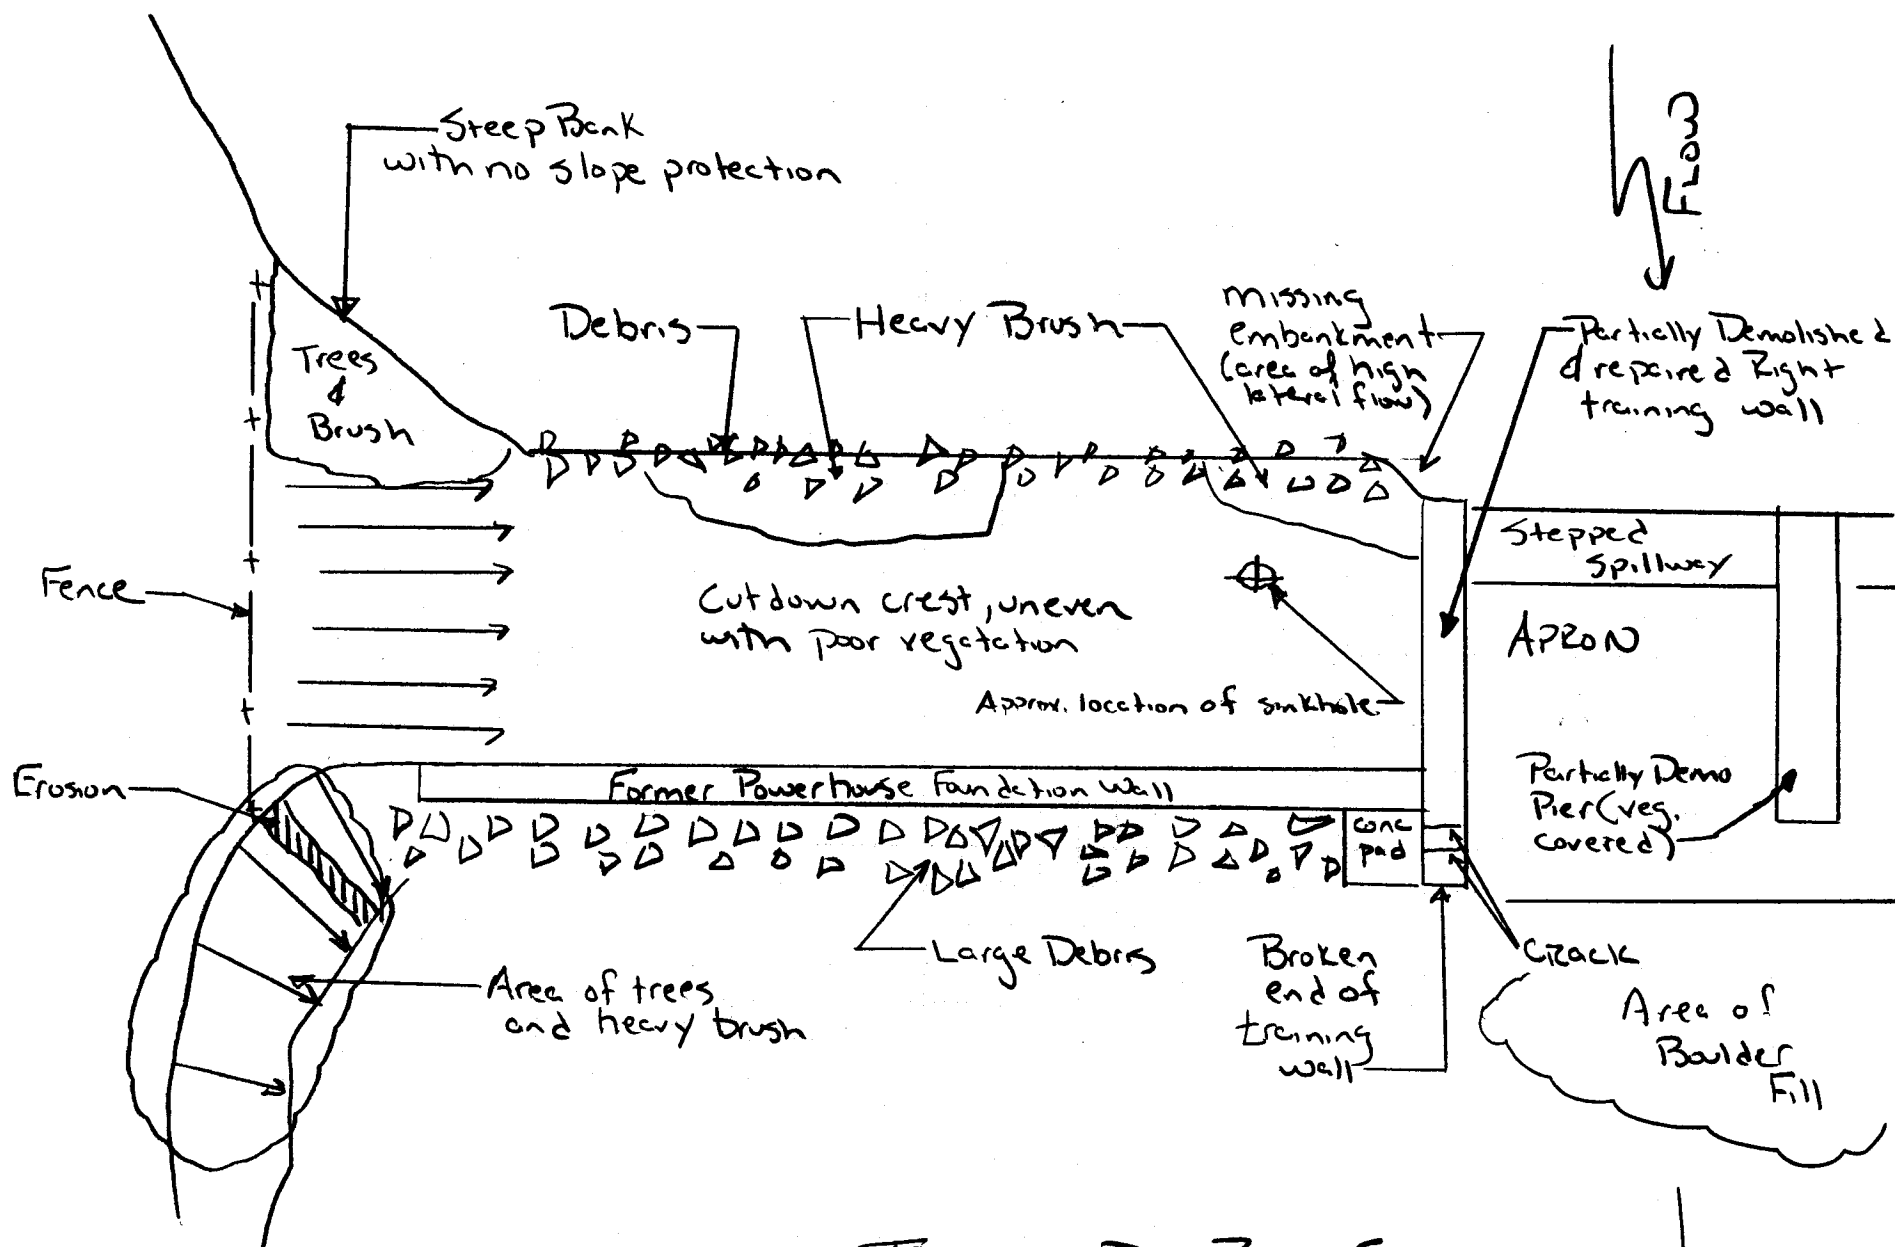 Steep Bank
with no slope protection
FLOW
Trees
&
Brush
Debris
Heavy Brush
missing
embankment
(area of high
lateral flow)
Partially Demolished
& repaired Right
training wall
Stepped
Spillway
Fence
Cutdown crest, uneven
with poor vegatation
APRON
Approx. location of sinkhole
Erosion
Former Powerhouse Foundation Wall
conc
pad
Partially Demo
Pier (veg.
covered)
Large Debris
Broken
end of
training
wall
Crack
Area of trees
and heavy brush
Area of
Boulder
Fill